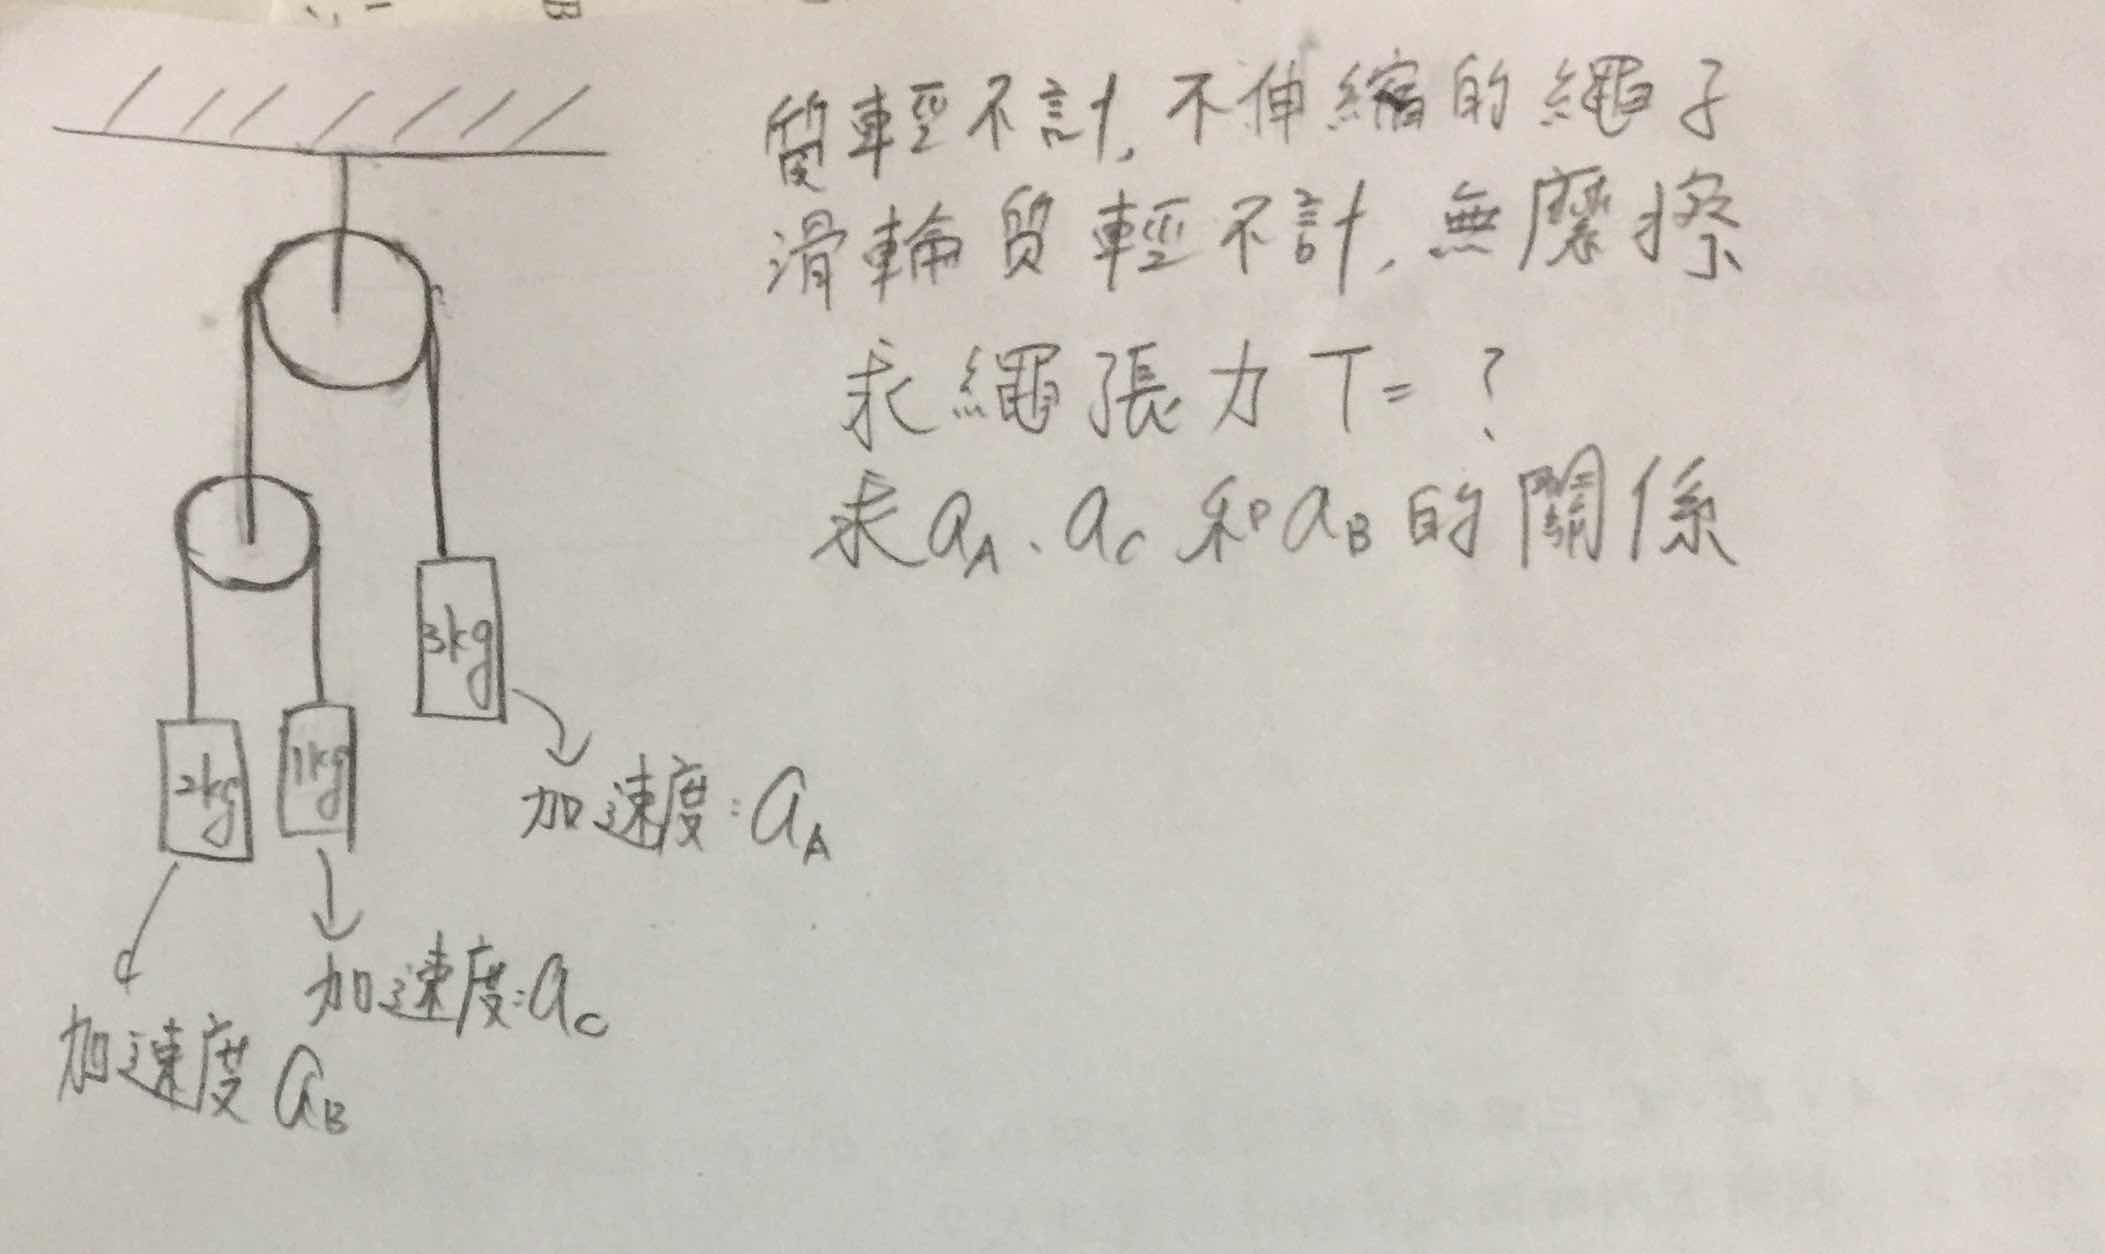 B
質輕不計,不伸縮的繩子
滑輪質輕不計,無磨擦
求繩張力T=?
求aA、aC和aB的關係
3kg
2kg
1kg
加速度:aA
加速度:aC
加速度aB